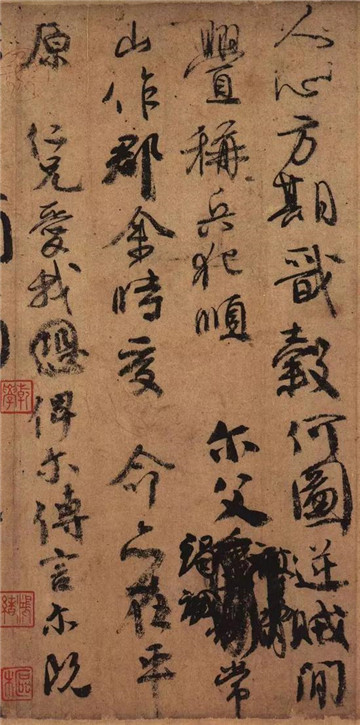 人心方期戩穀何圖逆賊間
釁稱兵犯順 尔父常
山作郡余時受 命亦在平
原 仁兄愛我俾尔傳言尔既